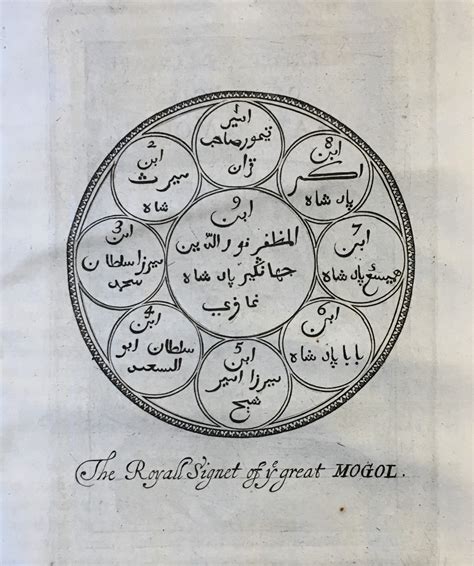 امير
تيمور صاحب
قران
2
ابن
ميرن
شاه
3
ابن
ميرزا سلطان
محمد
4
ابن
سلطان ابو
السعيد
5
ابن
ميرزا امير
شيخ
6
ابن
بابا پاد شاه
7
ابن
پاد شاه
8
ابن
اكبر
پاد شاه
9
ابن
المظفر نور الدين
جهانگير پاد شاه
The Royall Signet of yᵉ great MOGOL.